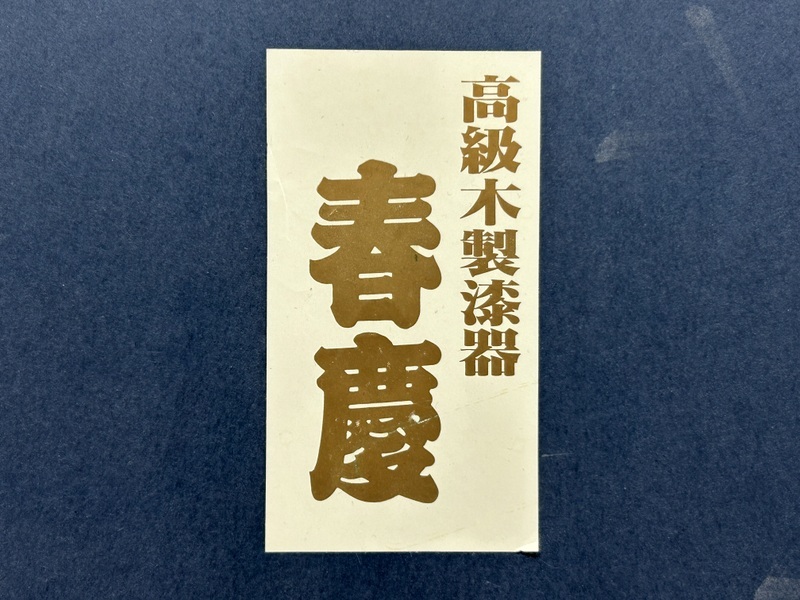 高級木製漆器
春慶